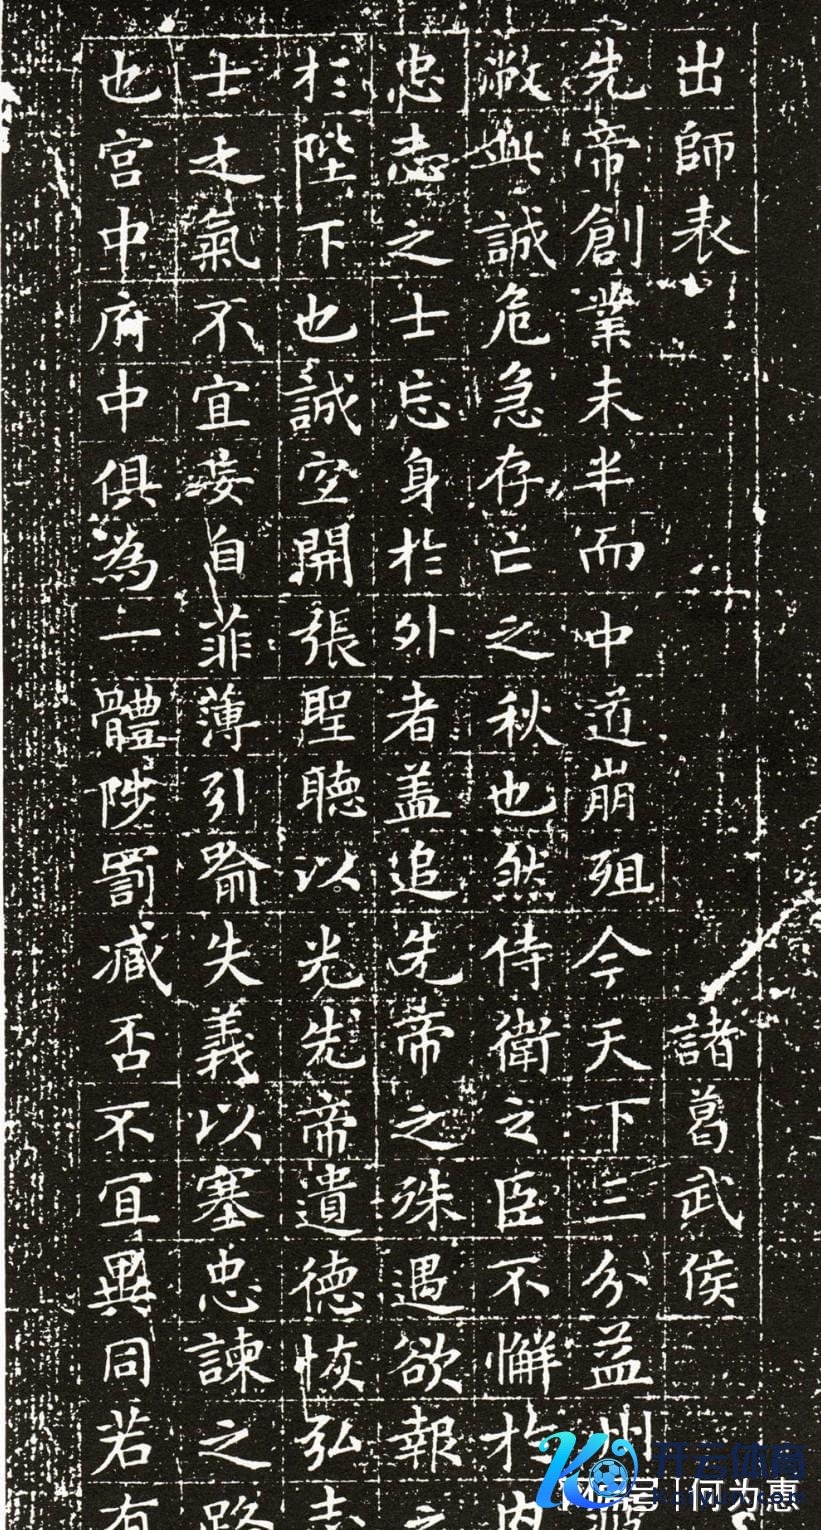 出師表 諸葛武侯
先帝創業未半而中道崩殂今天下三分益州
敝此誠危急存亡之秋也然侍衛之臣不懈於内
忠志之士忘身於外者盖追先帝之殊遇欲報之
於陛下也誠宜開張聖聽以光先帝遺德恢弘志
士之氣不宜妄自菲薄引喻失義以塞忠諫之路
也宫中府中俱為一體陟罰臧否不宜異同若有
开云体育
何为惠